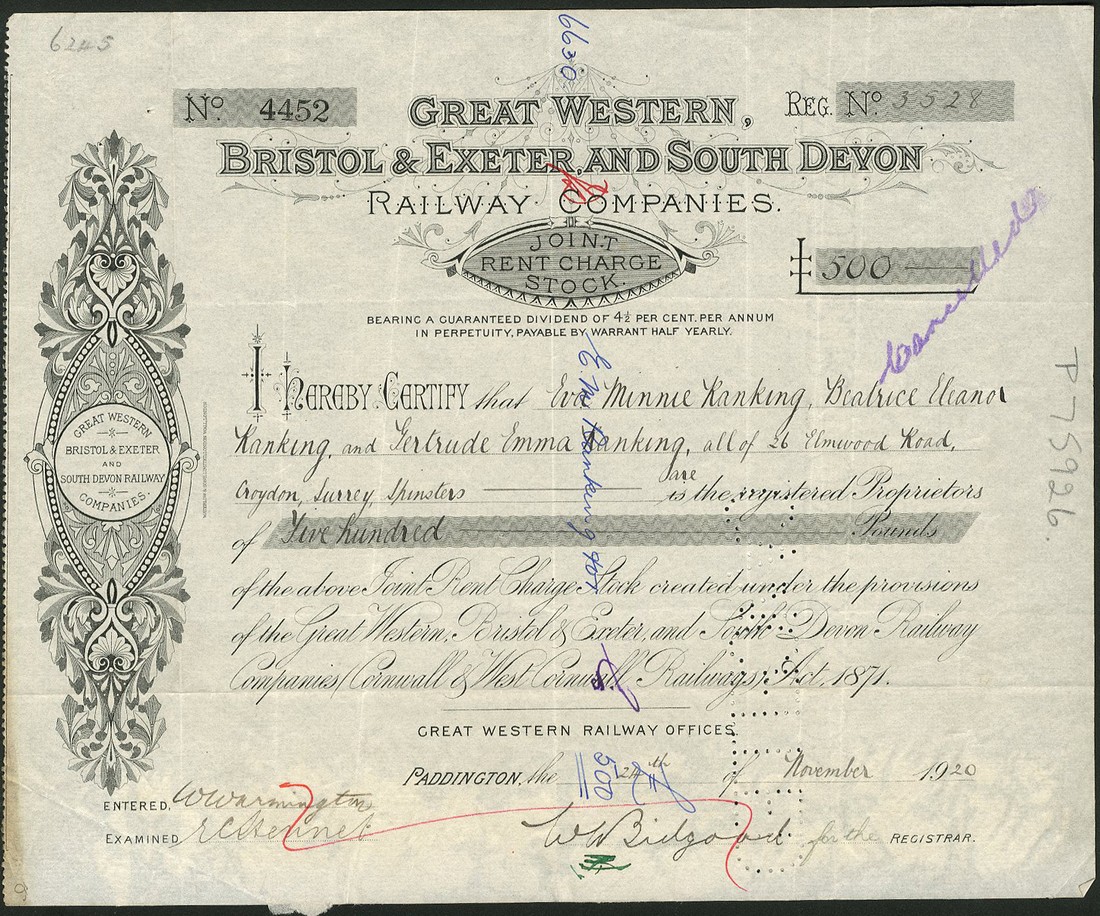 6245
6630
No. 4452
GREAT WESTERN,
REG. No. 3528
BRISTOL & EXETER, AND SOUTH DEVON
RAILWAY COMPANIES.
JOINT
RENT CHARGE
STOCK.
£ 500
Cancelled
BEARING A GUARANTEED DIVIDEND OF 4½ PER CENT. PER ANNUM
IN PERPETUITY, PAYABLE BY WARRANT HALF YEARLY.
I HEREBY CERTIFY that Eva Minnie Ranking, Beatrice Eleanor
Ranking, and Gertrude Emma Ranking, all of 26 Elmwood Road,
Croydon, Surrey Spinsters are is the registered Proprietors
of Five hundred Pounds
of the above Joint Rent Charge Stock created under the provisions
of the Great Western, Bristol & Exeter, and South Devon Railway
Companies (Cornwall & West Cornwall Railways) Act, 1871.
GREAT WESTERN RAILWAY OFFICES.
PADDINGTON, the 24th of November 1920
ENTERED, W Warmington
EXAMINED
W Bidgood for the REGISTRAR.
GREAT WESTERN
BRISTOL & EXETER
AND
SOUTH DEVON RAILWAY
COMPANIES.
E. M. Ranking
500
P75926